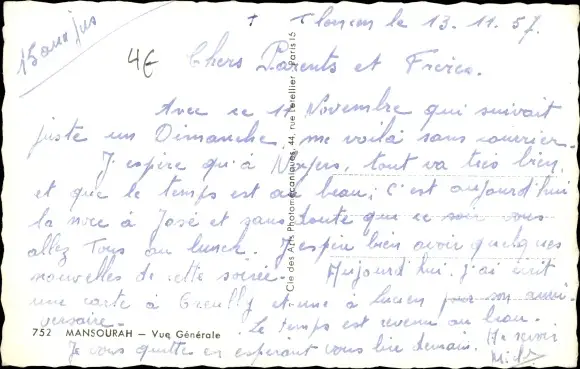 15 ans jus
4€
+ Tlemcen le 13.11.57.
Chers Parents et Frères.
Avec ce 11 Novembre qui suivait
juste un Dimanche, me voilà sans courrier.
J'espère qu'à Noyers, tout va très bien,
et que le temps est au beau; C'est aujourd'hui
la noce à José et sans doute que ce soir vous
allez tous au lunch. J'espère bien avoir quelques
nouvelles de cette soirée. Aujourd'hui j'ai écrit
une carte à Creully et une à Lucien pour son anni-
versaire. Le temps est revenu au beau.
Je vous quitte en espérant vous lire demain.
752 MANSOURAH — Vue Générale
Cie des Arts Photomécaniques, 44, rue Letellier - Paris 15